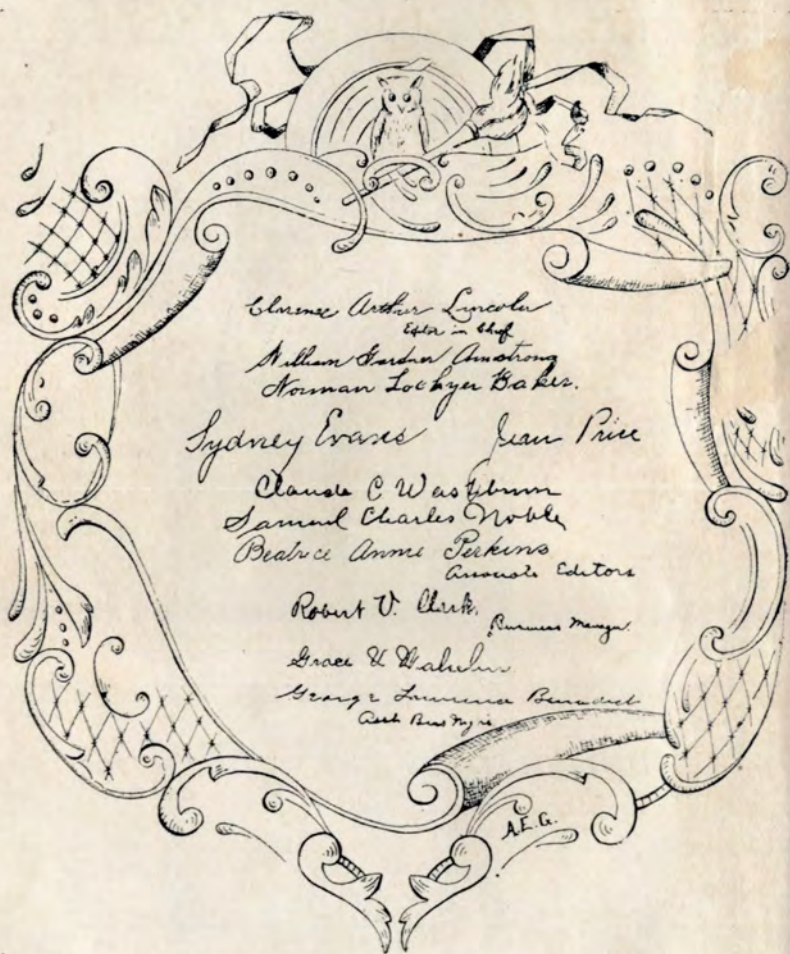 Clarence Arthur Lincoln
Editor in Chief
William Gardner Armstrong
Norman Lockyer Baker.
Sydney Evans Jean Price
Claude C Washburn
Samuel Charles Noble
Beatrice Annie Perkins
Associate Editors
Robert V. Clark.
Business Manager.
Grace U
George Lawrence Benedict
Asst Bus Mgrs
A.E.G.